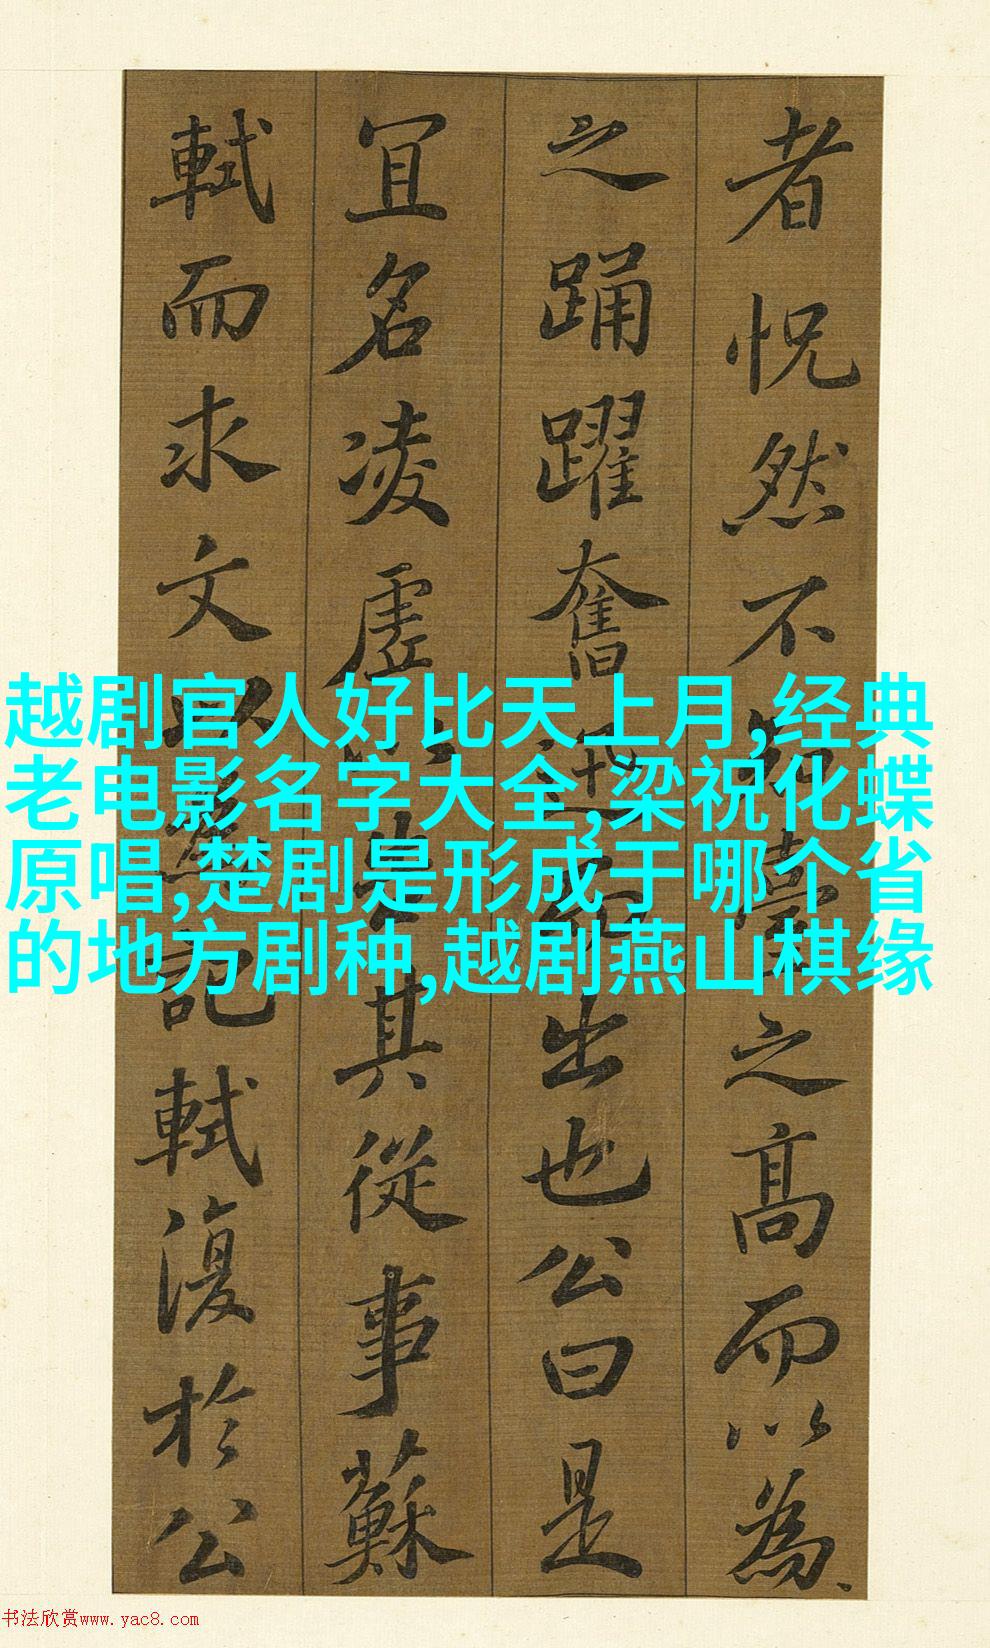 者怳然不知臺之高而以為
之踊躍奮迅而出也公曰是
宜名凌虛以告其從事蘇
軾而求文以為記軾復於公
越剧官人好比天上月,经典
老电影名字大全,梁祝化蝶
原唱,楚剧是形成于哪个省
的地方剧种,越剧燕山棋缘
书法欣赏www.yac8.com